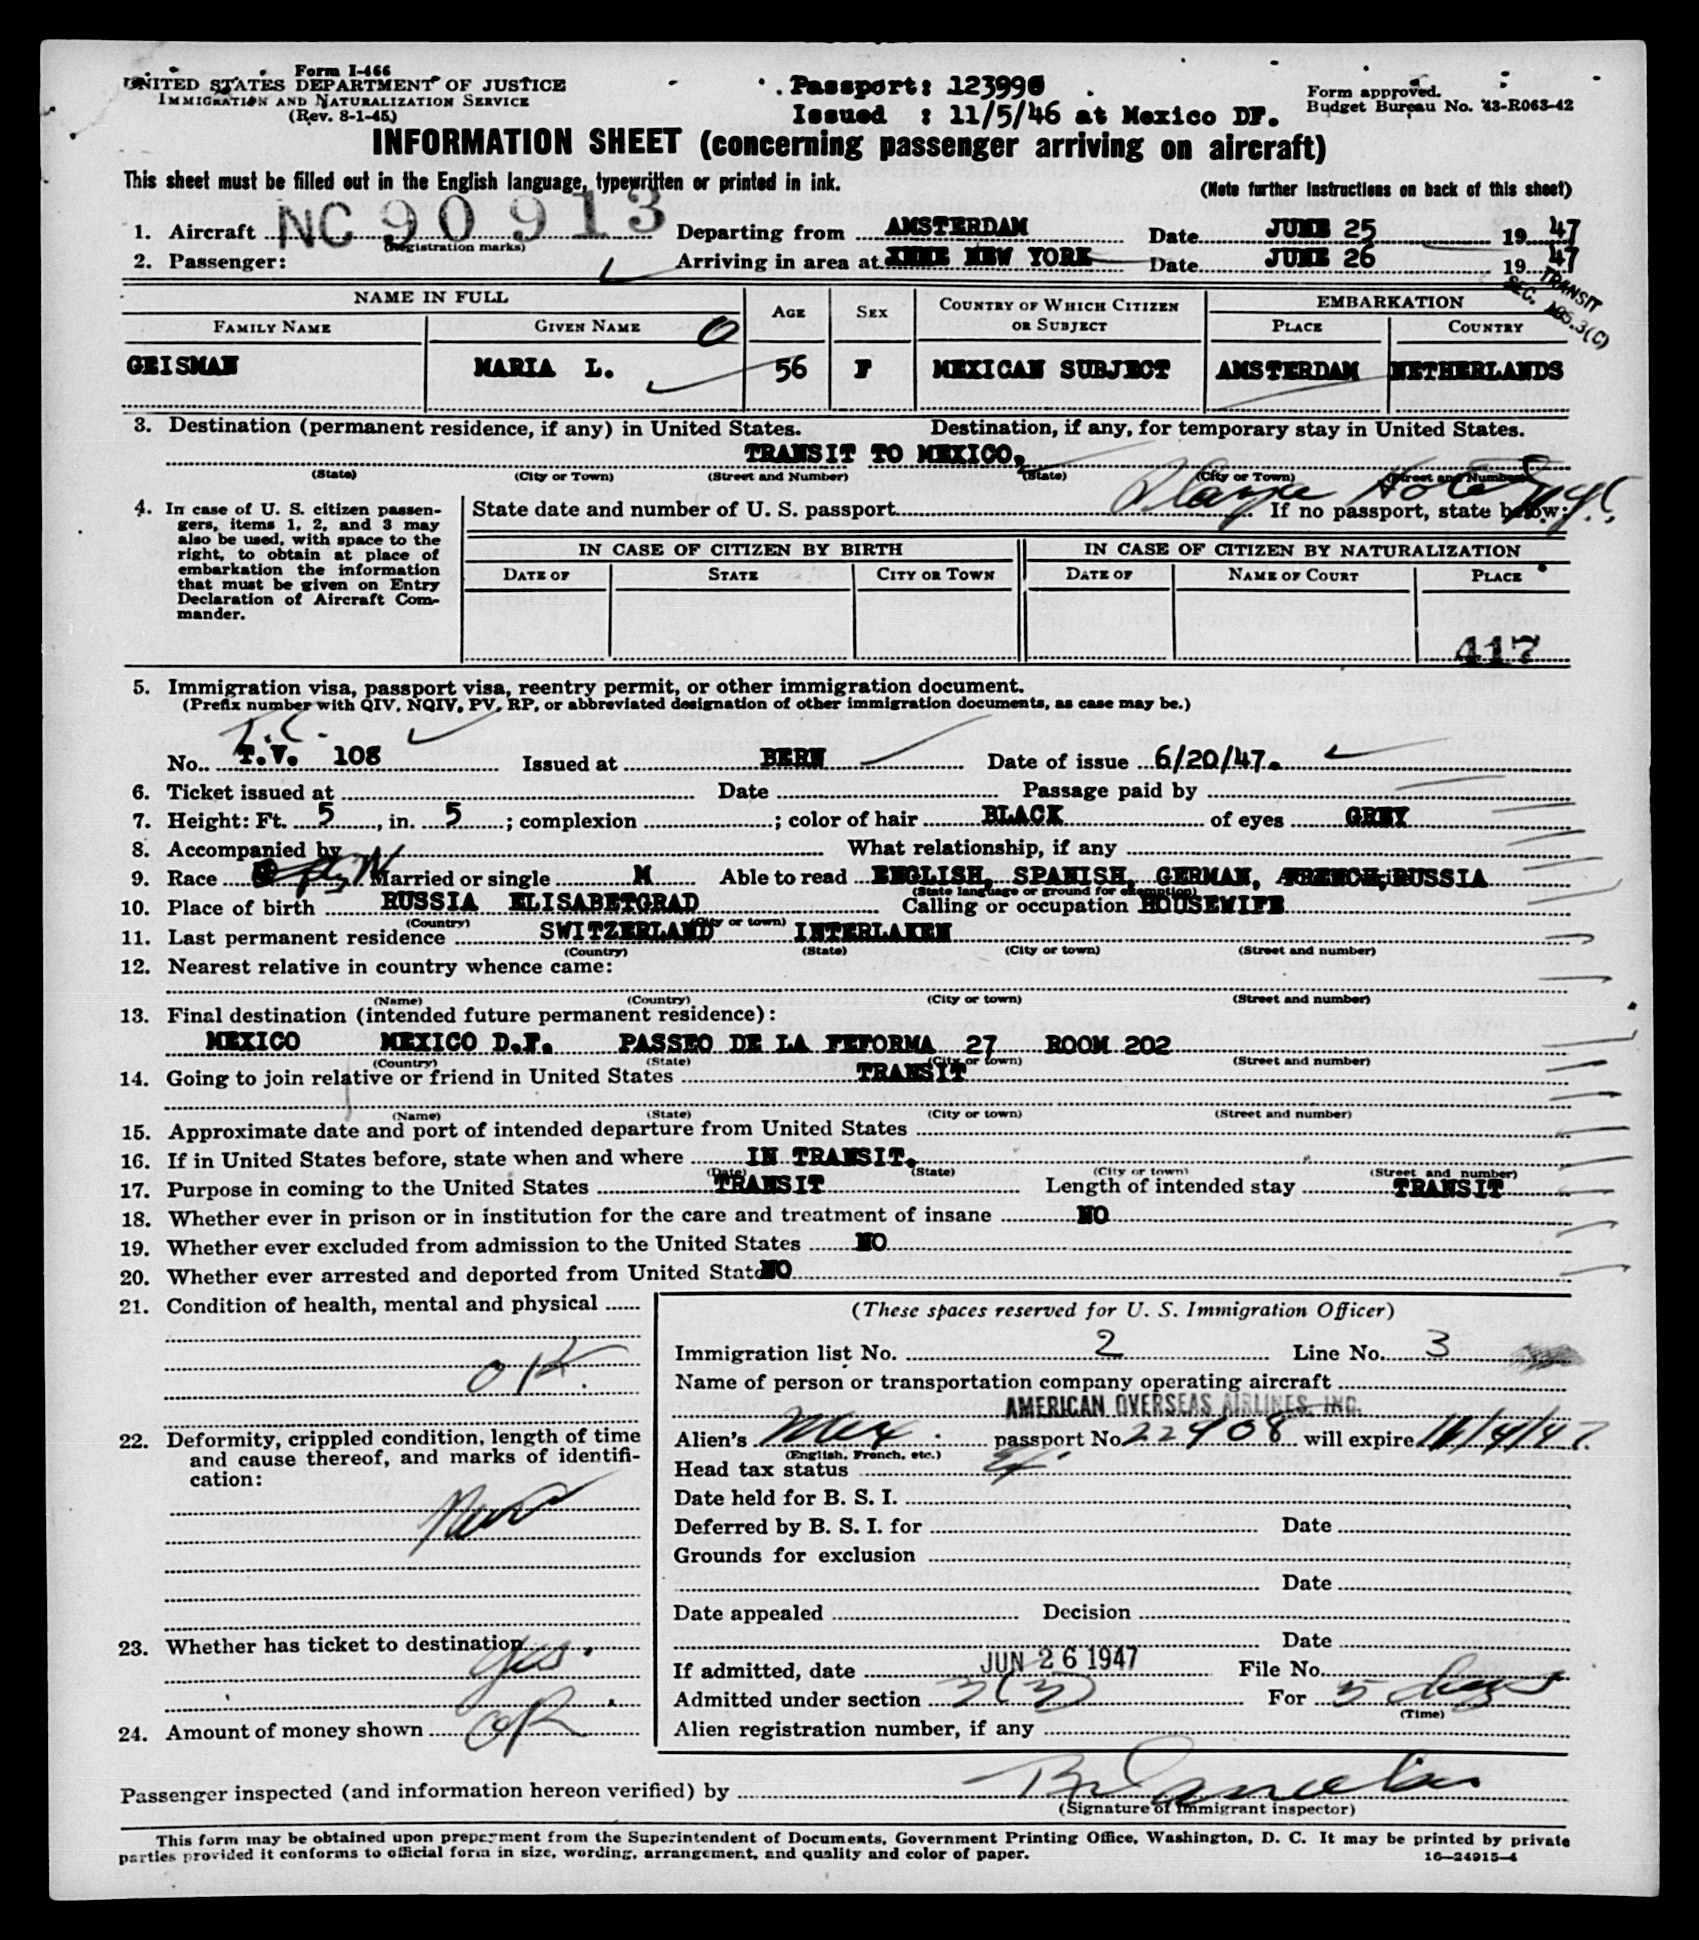 Form I-466
UNITED STATES DEPARTMENT OF JUSTICE
IMMIGRATION AND NATURALIZATION SERVICE
(Rev. 8-1-45)
Passport: 123996
Issued : 11/5/46 at Mexico DF.
Form approved.
Budget Bureau No. 43-R063-42
INFORMATION SHEET (concerning passenger arriving on aircraft)
This sheet must be filled out in the English language, typewritten or printed in ink.
(Note further instructions on back of this sheet)
1. Aircraft NC 90 913 Departing from AMSTERDAM Date JUNE 25 1947
(Registration marks)
2. Passenger: Arriving in area at NEW YORK Date JUNE 26 1947
TRANSIT
SEC. 3(C)
NAME IN FULL AGE SEX COUNTRY OF WHICH CITIZEN OR SUBJECT EMBARKATION
FAMILY NAME GIVEN NAME PLACE COUNTRY
GEISMAN MARIA L. 56 F MEXICAN SUBJECT AMSTERDAM NETHERLANDS
3. Destination (permanent residence, if any) in United States. Destination, if any, for temporary stay in United States.
TRANSIT TO MEXICO,
(State) (City or Town) (Street and Number) (State) (City or Town) (Street and Number)
Hotel N.Y.C.
4. In case of U. S. citizen passengers, items 1, 2, and 3 may also be used, with space to the right, to obtain at place of embarkation the information that must be given on Entry Declaration of Aircraft Commander.
State date and number of U. S. passport If no passport, state below:
IN CASE OF CITIZEN BY BIRTH IN CASE OF CITIZEN BY NATURALIZATION
DATE OF STATE CITY OR TOWN DATE OF NAME OF COURT PLACE
417
5. Immigration visa, passport visa, reentry permit, or other immigration document.
(Prefix number with QIV, NQIV, PV, RP, or abbreviated designation of other immigration documents, as case may be.)
T.C.
No. T.V. 108 Issued at BERN Date of issue 6/20/47.
6. Ticket issued at Date Passage paid by
7. Height: Ft. 5, in. 5; complexion ; color of hair BLACK of eyes GREY
8. Accompanied by What relationship, if any
9. Race Married or single M Able to read ENGLISH, SPANISH, GERMAN, FRENCH, RUSSIA
(State language or ground for exemption)
10. Place of birth RUSSIA ELISABETGRAD Calling or occupation HOUSEWIFE
(Country) (City or town)
11. Last permanent residence SWITZERLAND INTERLAKEN
(Country) (State) (City or town) (Street and number)
12. Nearest relative in country whence came:
(Name) (Country) (City or town) (Street and number)
13. Final destination (intended future permanent residence):
MEXICO MEXICO D.F. PASSEO DE LA FEFORMA 27 ROOM 202
(Country) (State) (City or town) (Street and number)
14. Going to join relative or friend in United States TRANSIT
(Name) (State) (City or town) (Street and number)
15. Approximate date and port of intended departure from United States
16. If in United States before, state when and where IN TRANSIT.
(Date) (State) (City or town) (Street and number)
17. Purpose in coming to the United States TRANSIT Length of intended stay TRANSIT
18. Whether ever in prison or in institution for the care and treatment of insane NO
19. Whether ever excluded from admission to the United States NO
20. Whether ever arrested and deported from United States NO
21. Condition of health, mental and physical
OK.
22. Deformity, crippled condition, length of time and cause thereof, and marks of identification:
None
23. Whether has ticket to destination yes.
24. Amount of money shown OK
(These spaces reserved for U. S. Immigration Officer)
Immigration list No. 2 Line No. 3
Name of person or transportation company operating aircraft
AMERICAN OVERSEAS AIRLINES, INC.
Alien's Mex. passport No. 22908 will expire 11/4/47.
(English, French, etc.)
Head tax status
Date held for B. S. I.
Deferred by B. S. I. for Date
Grounds for exclusion
Date
Date appealed Decision
Date
If admitted, date JUN 26 1947 File No.
Admitted under section 3(3) For 5 days
(Time)
Alien registration number, if any
Passenger inspected (and information hereon verified) by
(Signature of immigrant inspector)
This form may be obtained upon prepayment from the Superintendent of Documents, Government Printing Office, Washington, D. C. It may be printed by private
parties provided it conforms to official form in size, wording, arrangement, and quality and color of paper.
16—24915-4